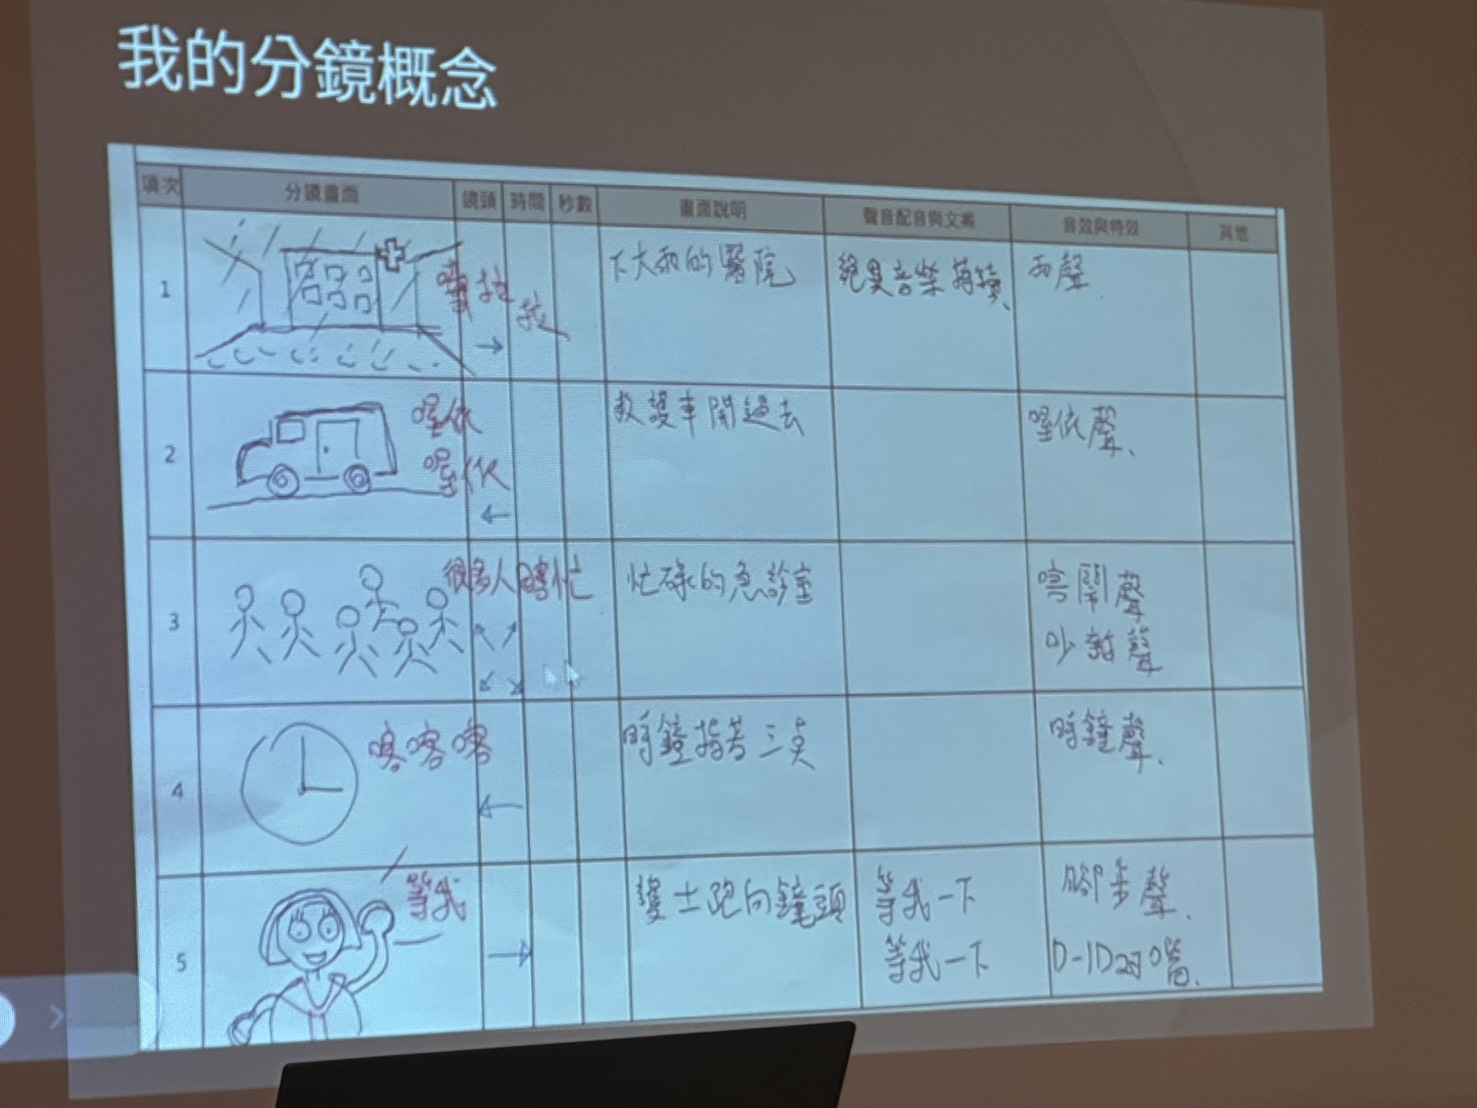 我的分鏡概念
項次 分鏡畫面 鏡頭 時間 秒數 畫面說明 聲音配音與文案 音效與特效 其他
1 嘩啦啦 → 下大雨的醫院 詭異音樂持續、 雨聲
2 喔依 喔依 ← 救護車開過去 喔依聲、
3 很多人 瞎忙 忙碌的急診室 喧鬧聲 吵雜聲
4 喀喀喀 ← 時鐘指著三點 時鐘聲、
5 等我 → 護士跑向鏡頭 等我一下 等我一下 腳步聲、 D-ID對嘴、